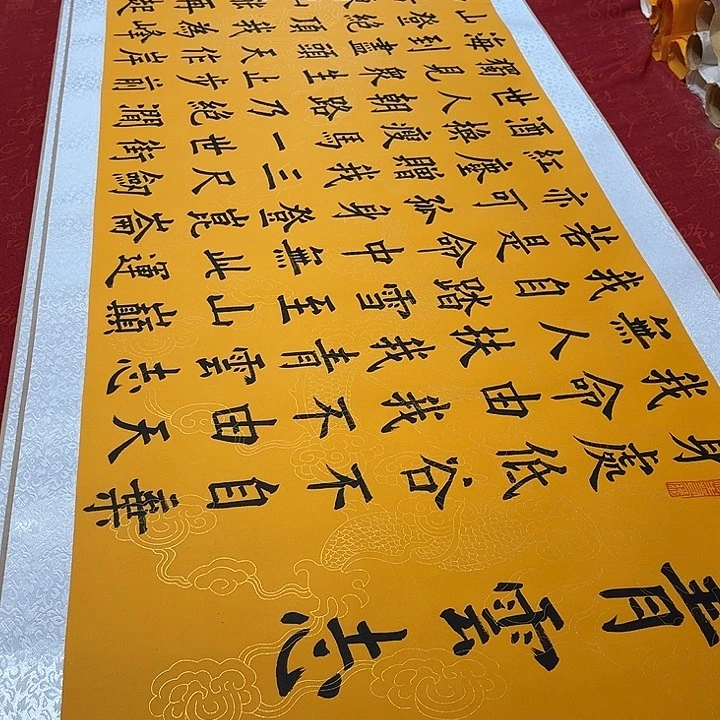 青雲志
身處低谷不自棄
我命由我不由天
無人扶我青雲志
我自踏雪至山巔
若是命中無此運
亦可孤身登崑崙
紅塵贈我三尺劍
酒操瘦馬一世街
世人朝路乃絕澗
獨見眾生止步前
海到盡頭天作岸
山登絕頂我為峰
山再起